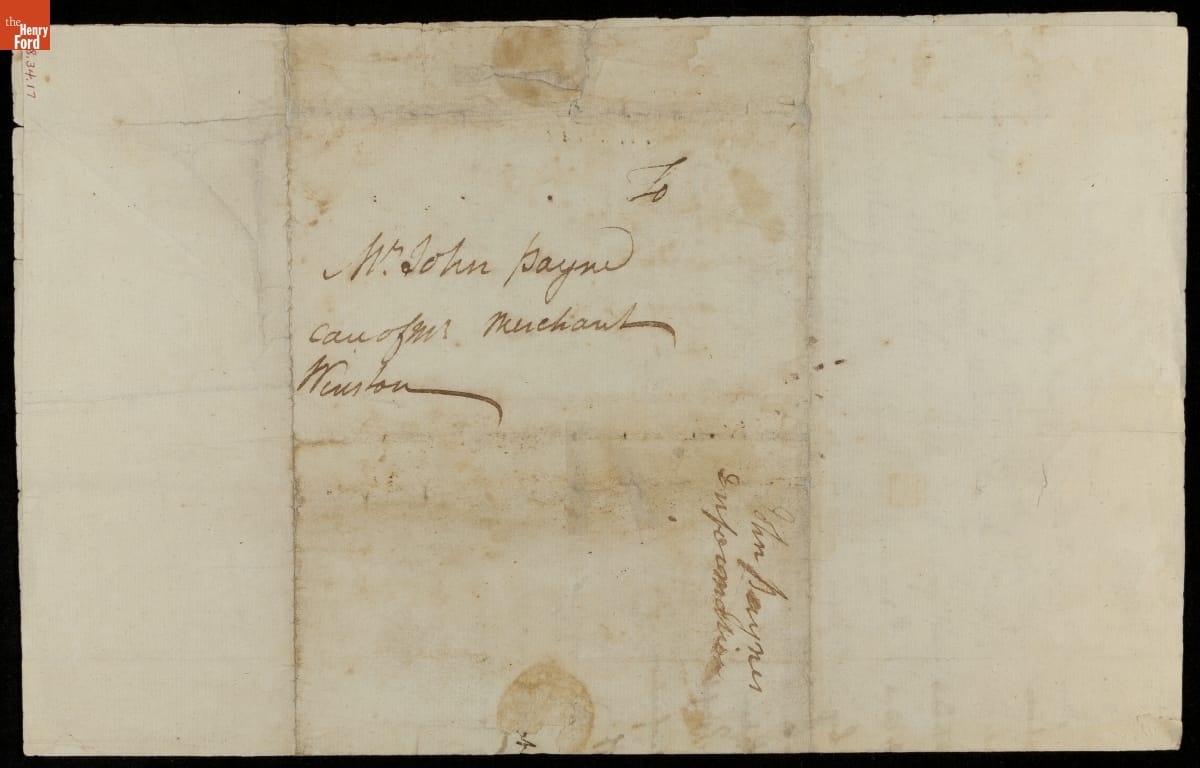 the
Henry
Ford
8.34.17
To
Mr. John Payne
care of Mr Merchant
Winston
John Paynes
Information